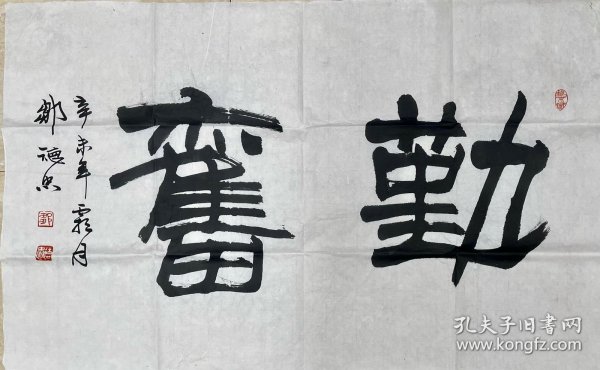 勤奮
辛未年霜月
鄒德忠
孔夫子旧书网
www.kongfz.com